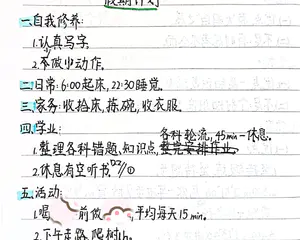 假期计划
一.自我修养:
1.认真写字.
2.不做小动作.
二.日常: 6:00起床, 22:30睡觉.
三.家务: 收拾床, 拣碗, 收衣服.
四.学业:
各科轮流, 45min一休息.
1.整理各科错题、知识点,
2.休息有空听书
五.活动:
1.喝 前做 平均每天15min.
2.下午走路, 爬树1h.